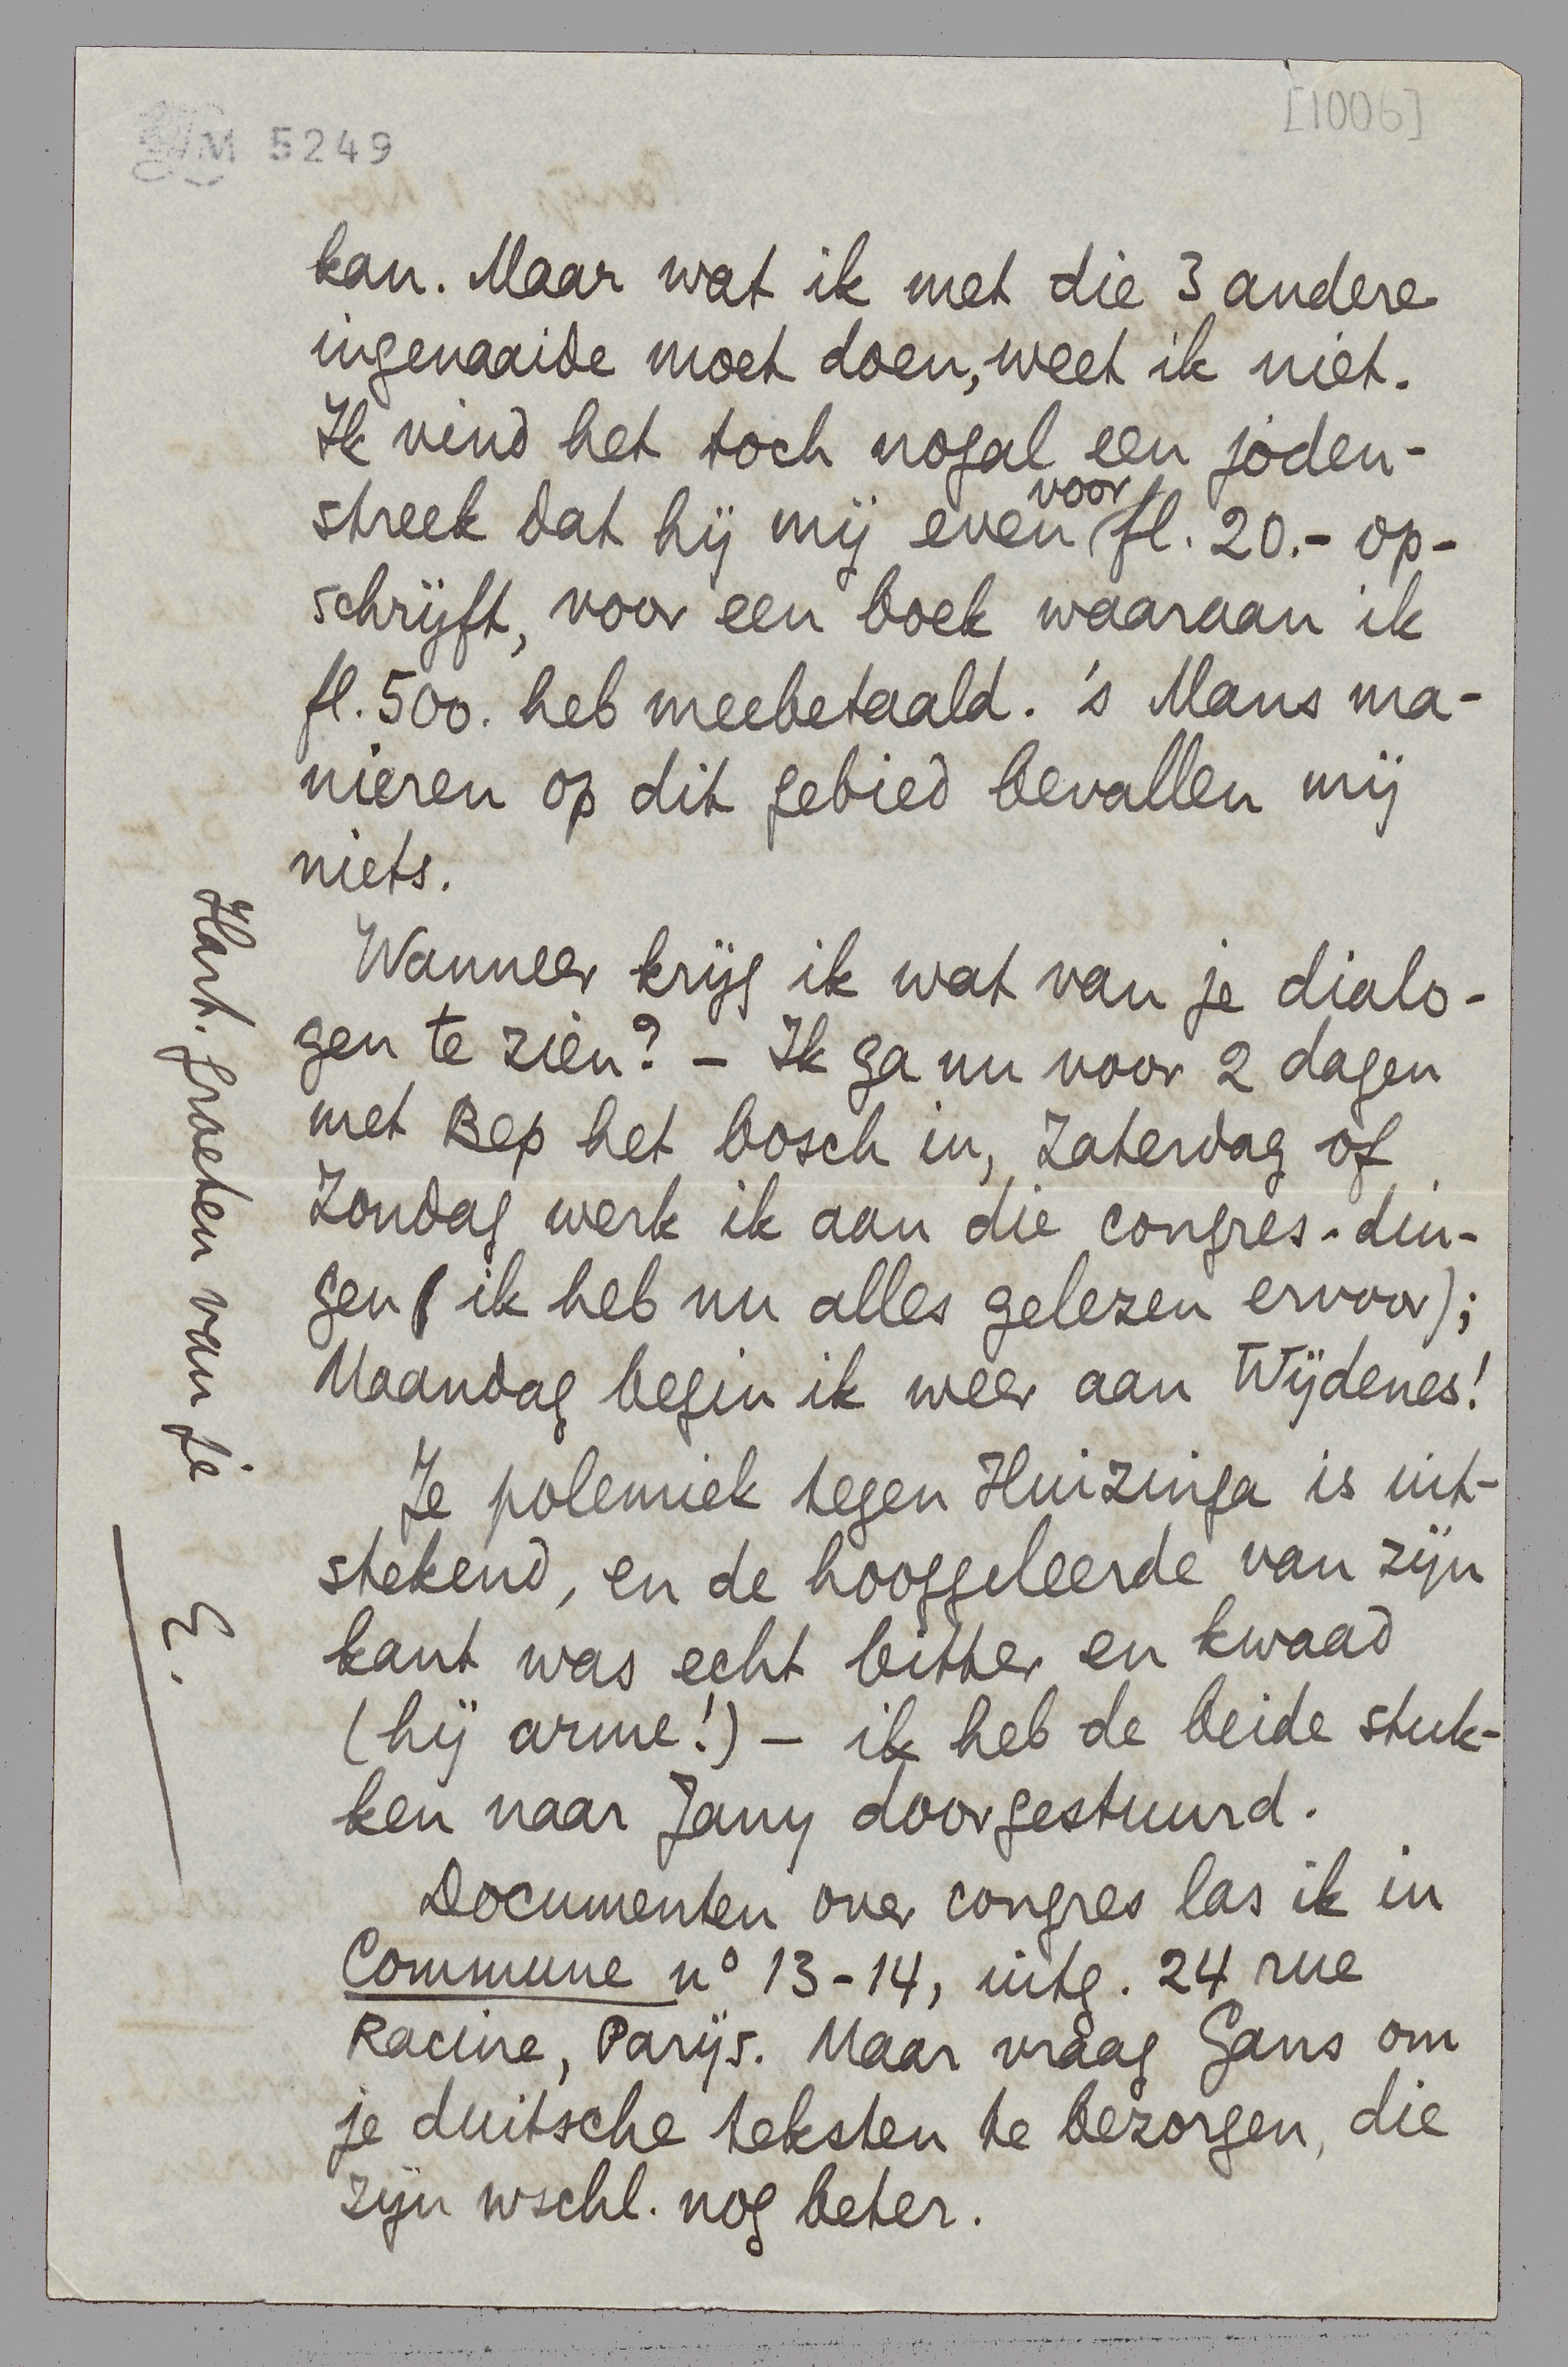 M 5249
[1006]
kan. Maar wat ik met die 3 andere
ingenaaide moet doen, weet ik niet.
Ik vind het toch nogal een joden-
streek dat hij mij even voor fl. 20.- op-
schrijft, voor een boek waaraan ik
fl. 500. heb meebetaald. 's Mans ma-
nieren op dit gebied bevallen mij
niets.
Wanneer krijg ik wat van je dialo-
gen te zien? - Ik ga nu voor 2 dagen
met Bep het bosch in, Zaterdag of
Zondag werk ik aan die congres-din-
gen (ik heb nu alles gelezen ervoor);
Maandag begin ik weer aan Wijdenes!
Je polemiek tegen Huizinga is uit-
stekend, en de hooggeleerde van zijn
kant was echt bitter en kwaad
(hij arme!) - ik heb de beide stuk-
ken naar Jany doorgestuurd.
Documenten over congres las ik in
Commune n° 13-14, uitg. 24 rue
Racine, Parijs. Maar vraag Gans om
je duitsche teksten te bezorgen, die
zijn wschl. nog beter.
Hart. groeten van je
E.